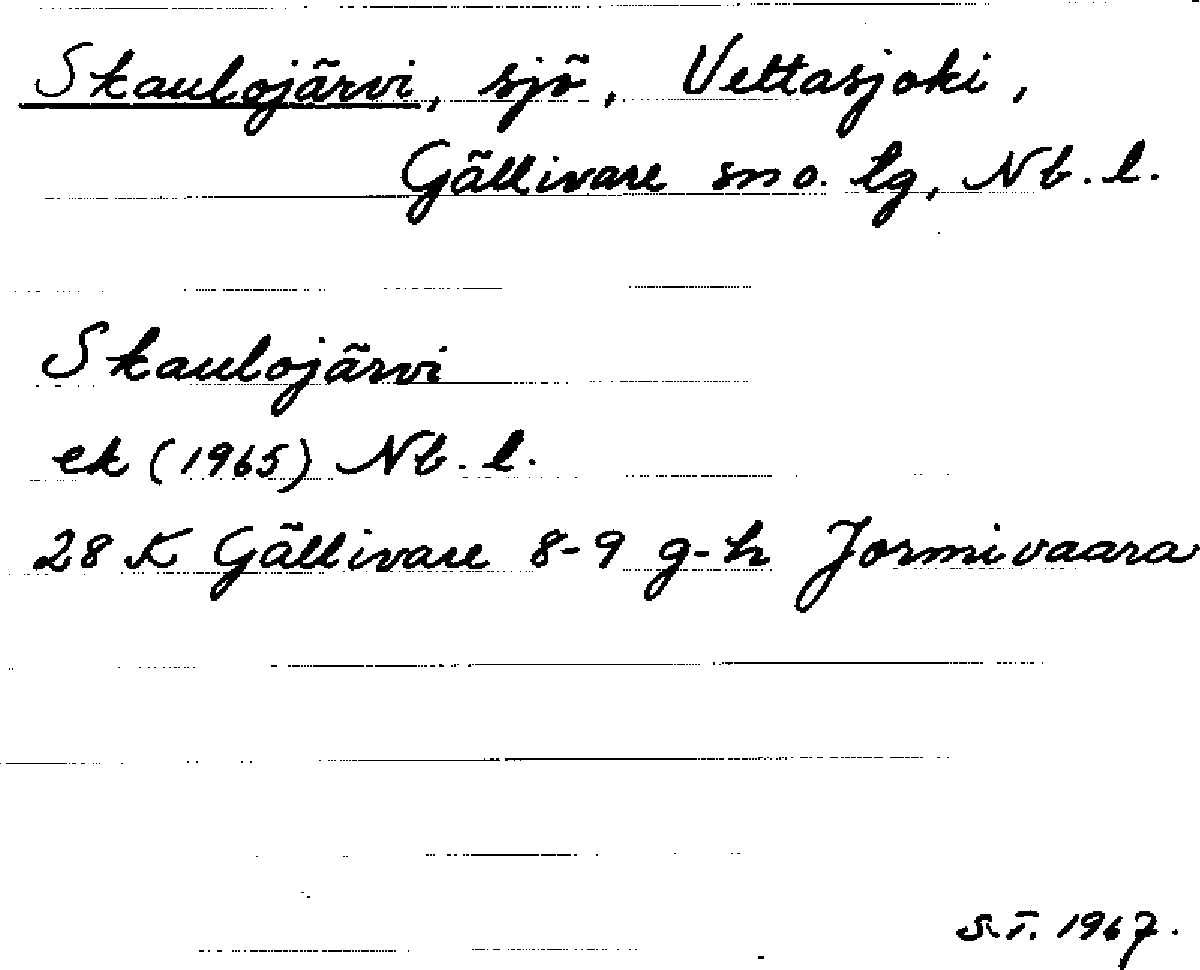 Skaulojärvi, sjö, Vettasjoki,
Gällivare sn o. lg, Nb. l.
Skaulojärvi
ek (1965) Nb. l.
28 K Gällivare 8-9 g-h Jormivaara
S.T. 1967.